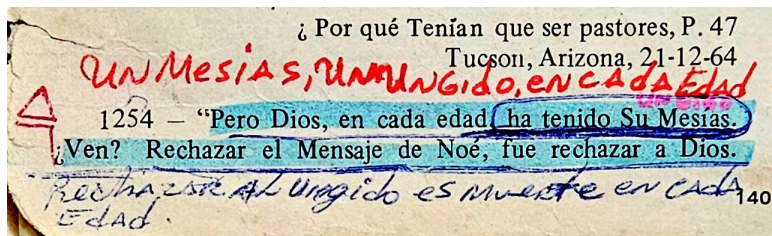 ¿ Por qué Tenían que ser pastores, P. 47
Tucson, Arizona, 21-12-64
UN Mesías, UN UNGido, en cada Edad
1254 – “Pero Dios, en cada edad, ha tenido Su Mesías.
¿Ven? Rechazar el Mensaje de Noé, fue rechazar a Dios.
Rechazar al Ungido es muerte en cada
Edad.
140